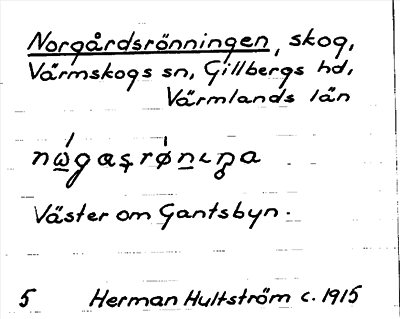 Norgårdsrönningen, skog,
Värmskogs sn, Gillbergs hd,
Värmlands län
Väster om Gantsbyn.
5 Herman Hultström c. 1915